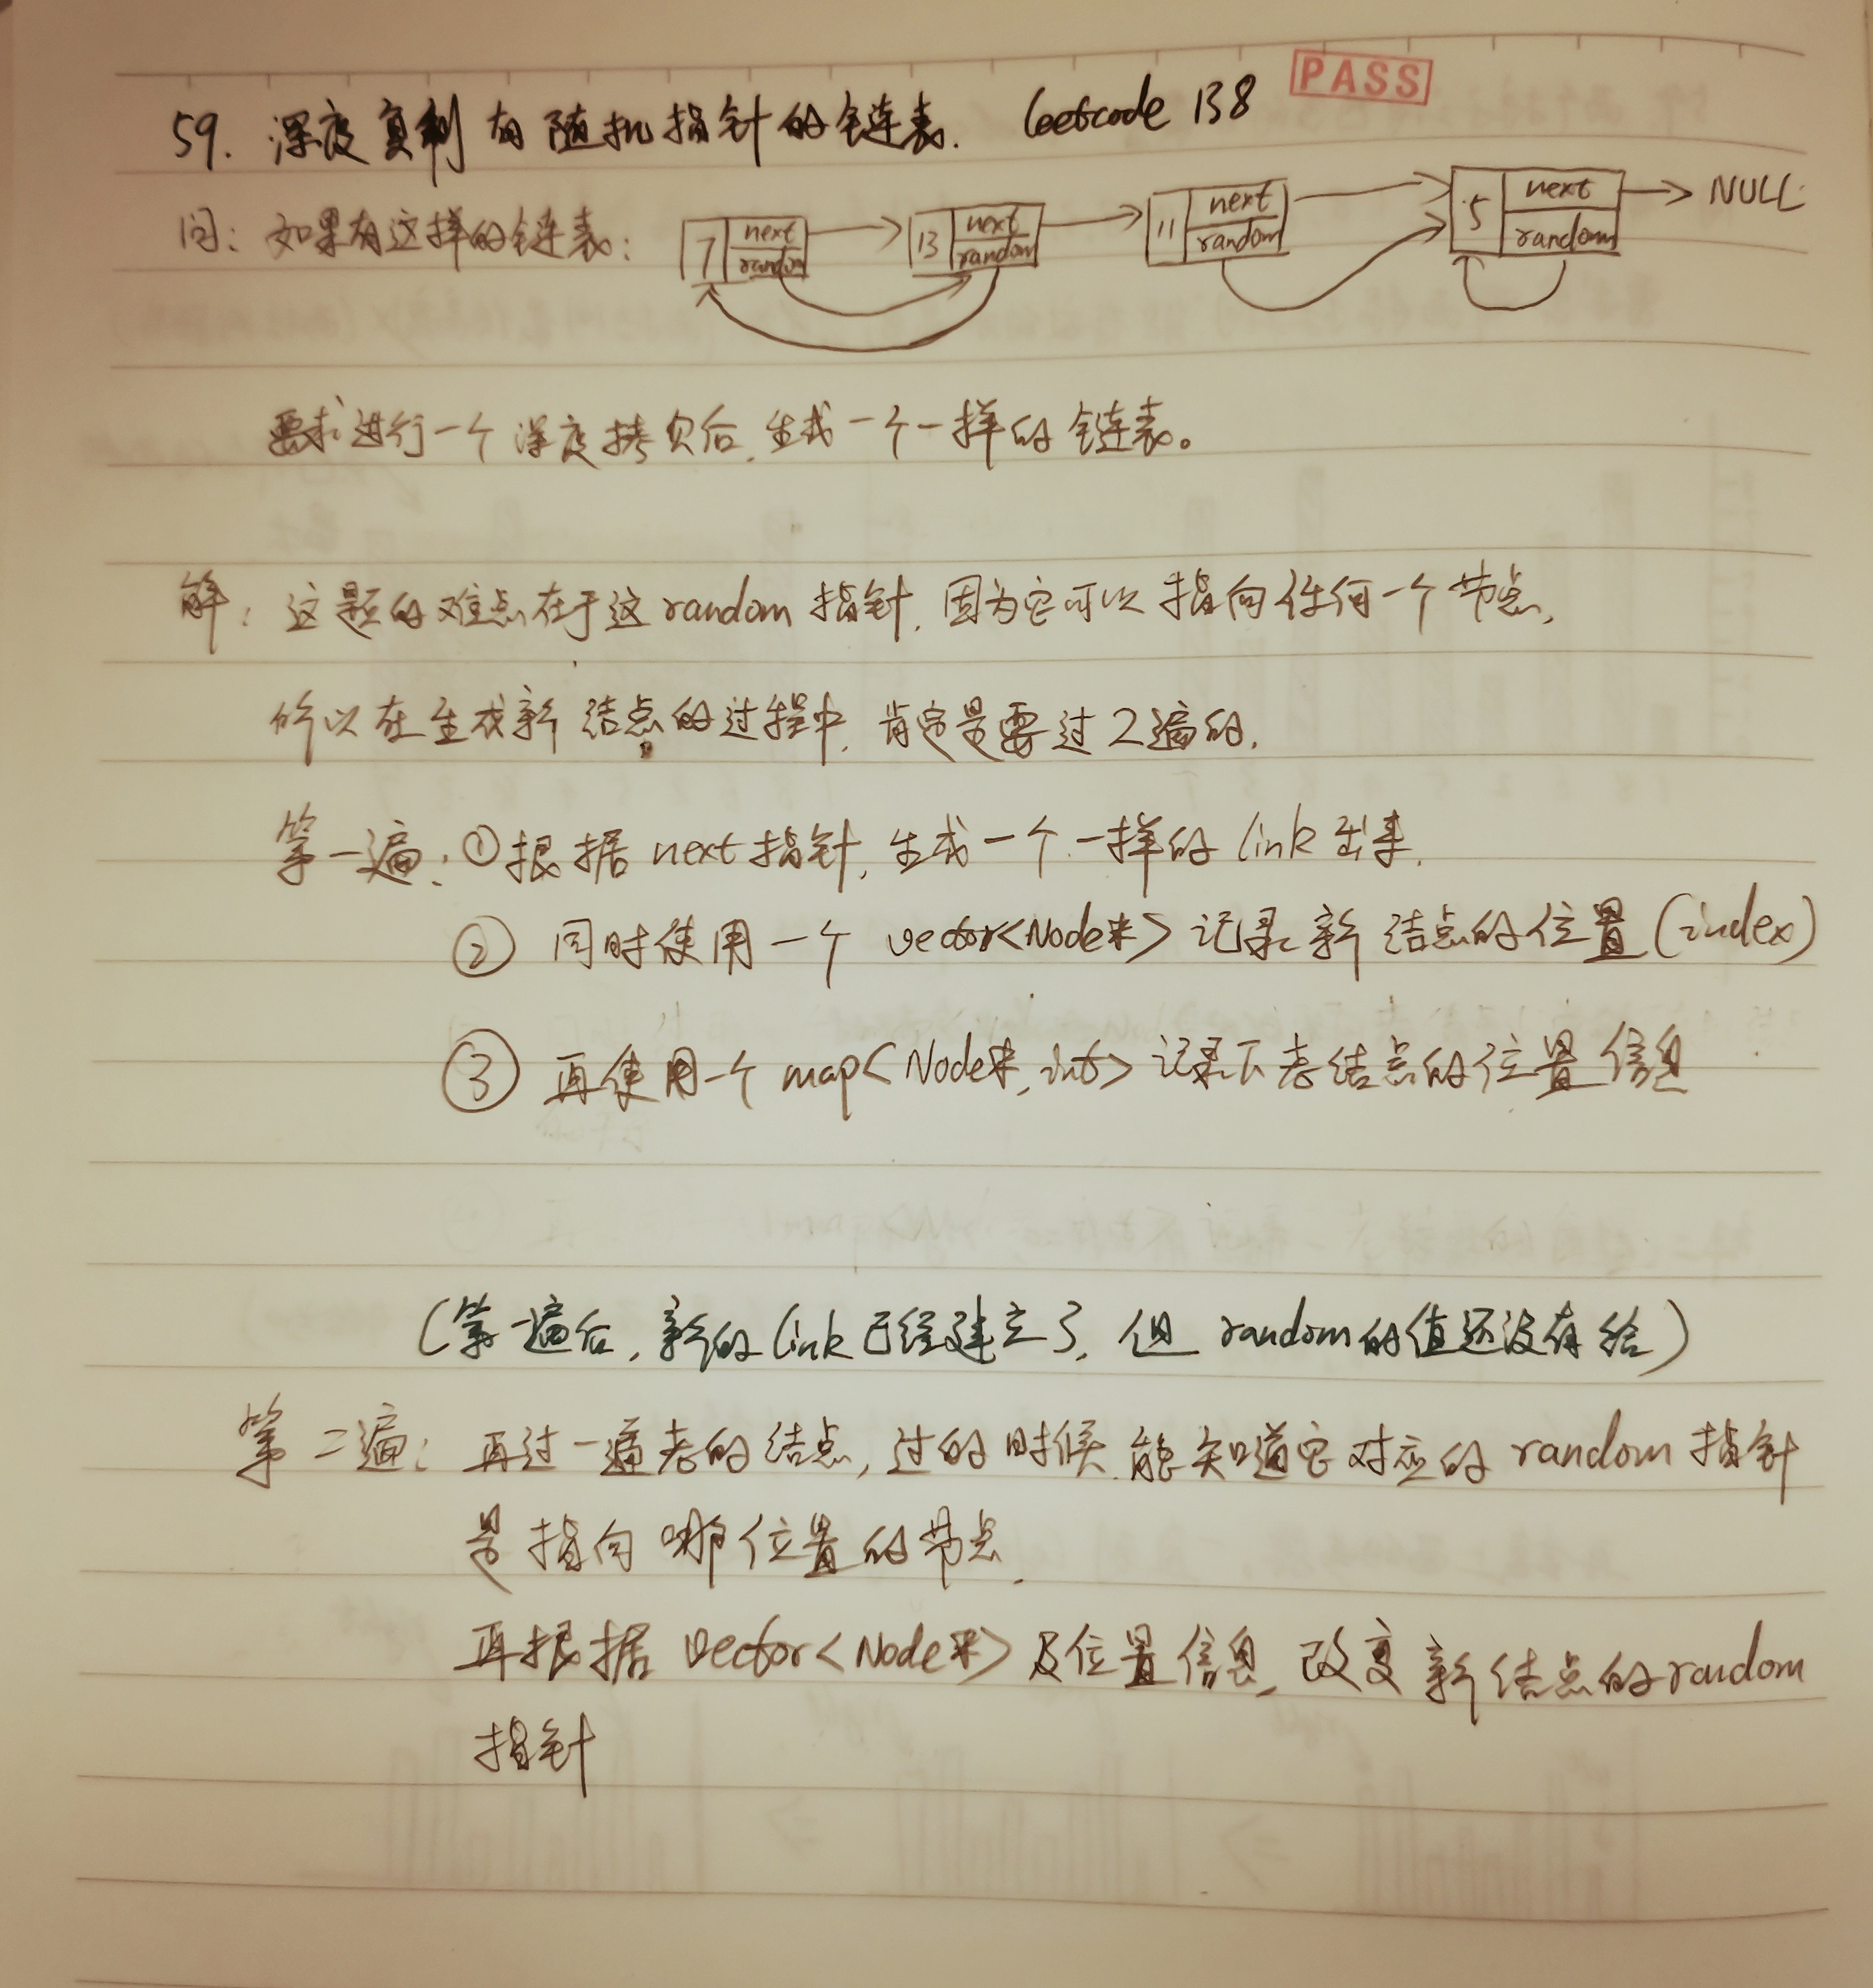 59. 深度复制有随机指针的链表. leetcode 138 PASS
问: 如果有这样的链表: 7 next random 13 next random 11 next random 5 next random NULL
要求进行一个深度拷贝后,生成一个一样的链表。
解: 这题的难点在于这random指针,因为它可以指向任何一个节点,
所以在生成新结点的过程中,肯定是要过2遍的.
第一遍: ①根据next指针,生成一个一样的link出来.
② 同时使用一个 vector<Node*> 记录新结点的位置(index)
③ 再使用一个 map<Node*,int> 记录下老结点的位置信息
(第一遍后,新的link已经建立了,但random的值还没有给)
第二遍: 再过一遍老的结点,过的时候,能知道它对应的random指针
是指向哪位置的节点.
再根据 vector<Node*> 及位置信息,改变新结点的random
指针